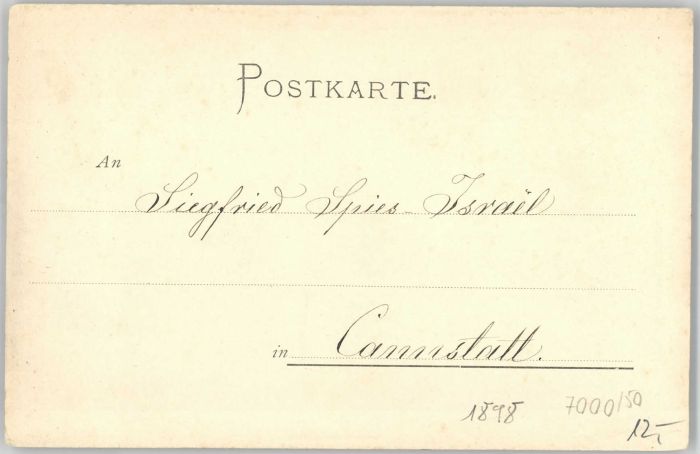 POSTKARTE.
An
Siegfried Spies-Israël
in Cannstatt.
1898
7000/50
12,-